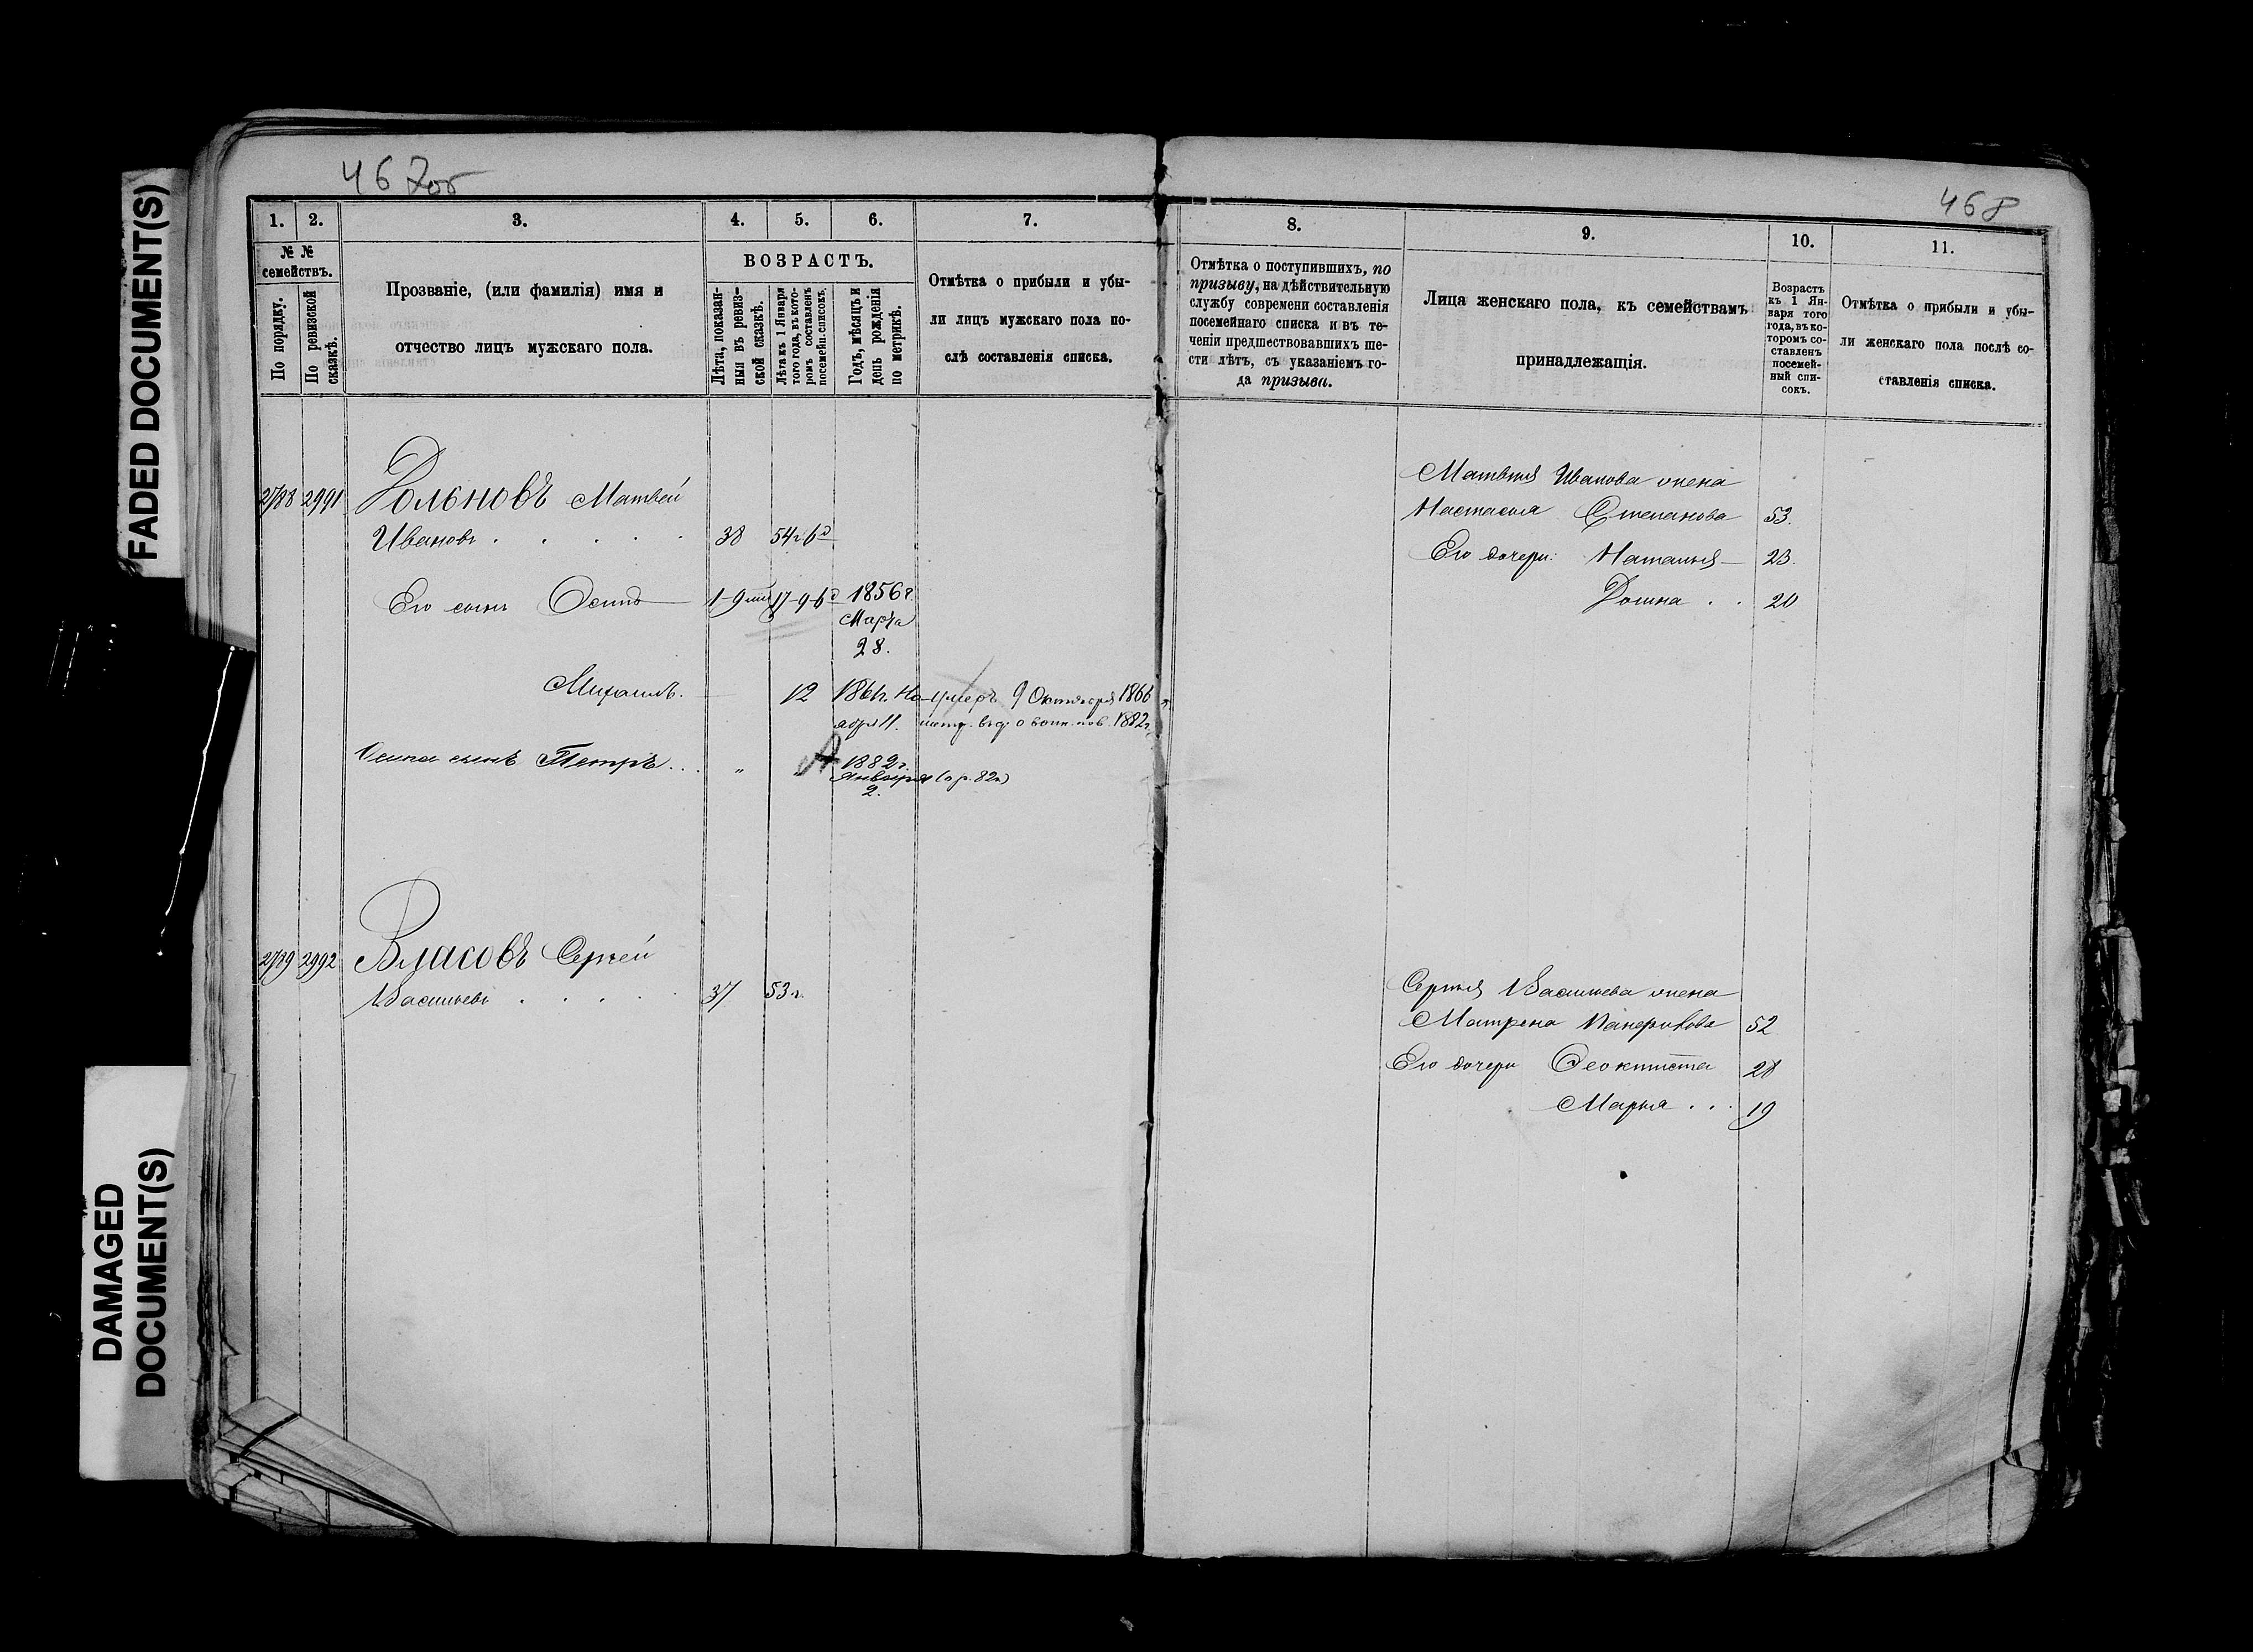 FADED DOCUMENT(S)
DAMAGED
DOCUMENT(S)
467об
468
1. 2. 3. 4. 5. 6. 7.
№ №
семействъ.
По порядку.
По ревизской
сказкѣ.
Прозваніе, (или фамилія) имя и
отчество лицъ мужскаго пола.
ВОЗРАСТЪ.
Лѣта, показан-
ныя въ ревиз-
ской сказкѣ.
Лѣта къ 1 Января
того года, въ кото-
ромъ составленъ
посемейн. списокъ.
Годъ, мѣсяцъ и
день рожденія
по метрикѣ.
Отмѣтка о прибыли и убы-
ли лицъ мужскаго пола по-
слѣ составленія списка.
8. 9. 10. 11.
Отмѣтка о поступившихъ, по
призыву, на дѣйствительную
службу современи составленія
посемейнаго списка и въ те-
ченіи предшествовавшихъ ше-
сти лѣтъ, съ указаніемъ го-
да призыва.
Лица женскаго пола, къ семействамъ
принадлежащія.
Возрастъ
къ 1 Ян-
варя того
года, въ ко-
торомъ со-
ставленъ
посемей-
ный спи-
сокъ.
Отмѣтка о прибыли и убы-
ли женскаго пола послѣ со-
ставленія списка.
2788 2991 Матвей
Ивановъ . . . . . 38 54
Его сынъ Осипъ 1-9 17-9 1856 г.
Марта
28.
Михаилъ. 12 Умеръ 9 Октября 1866
1882 г.
Осипа сынъ Петръ . . . „ 1882 г.
Января
2.
2789 2992 Власовъ Сергей
Васильевъ . . . . . 37 53 г.
Матвѣя Иванова жена
Настасья Степанова 53.
Его дочери: Наталья 23.
Домна . . 20
Сергѣя Васильева жена
Матрена 52
Его дочери Феоктиста 28
Марья . . . 19